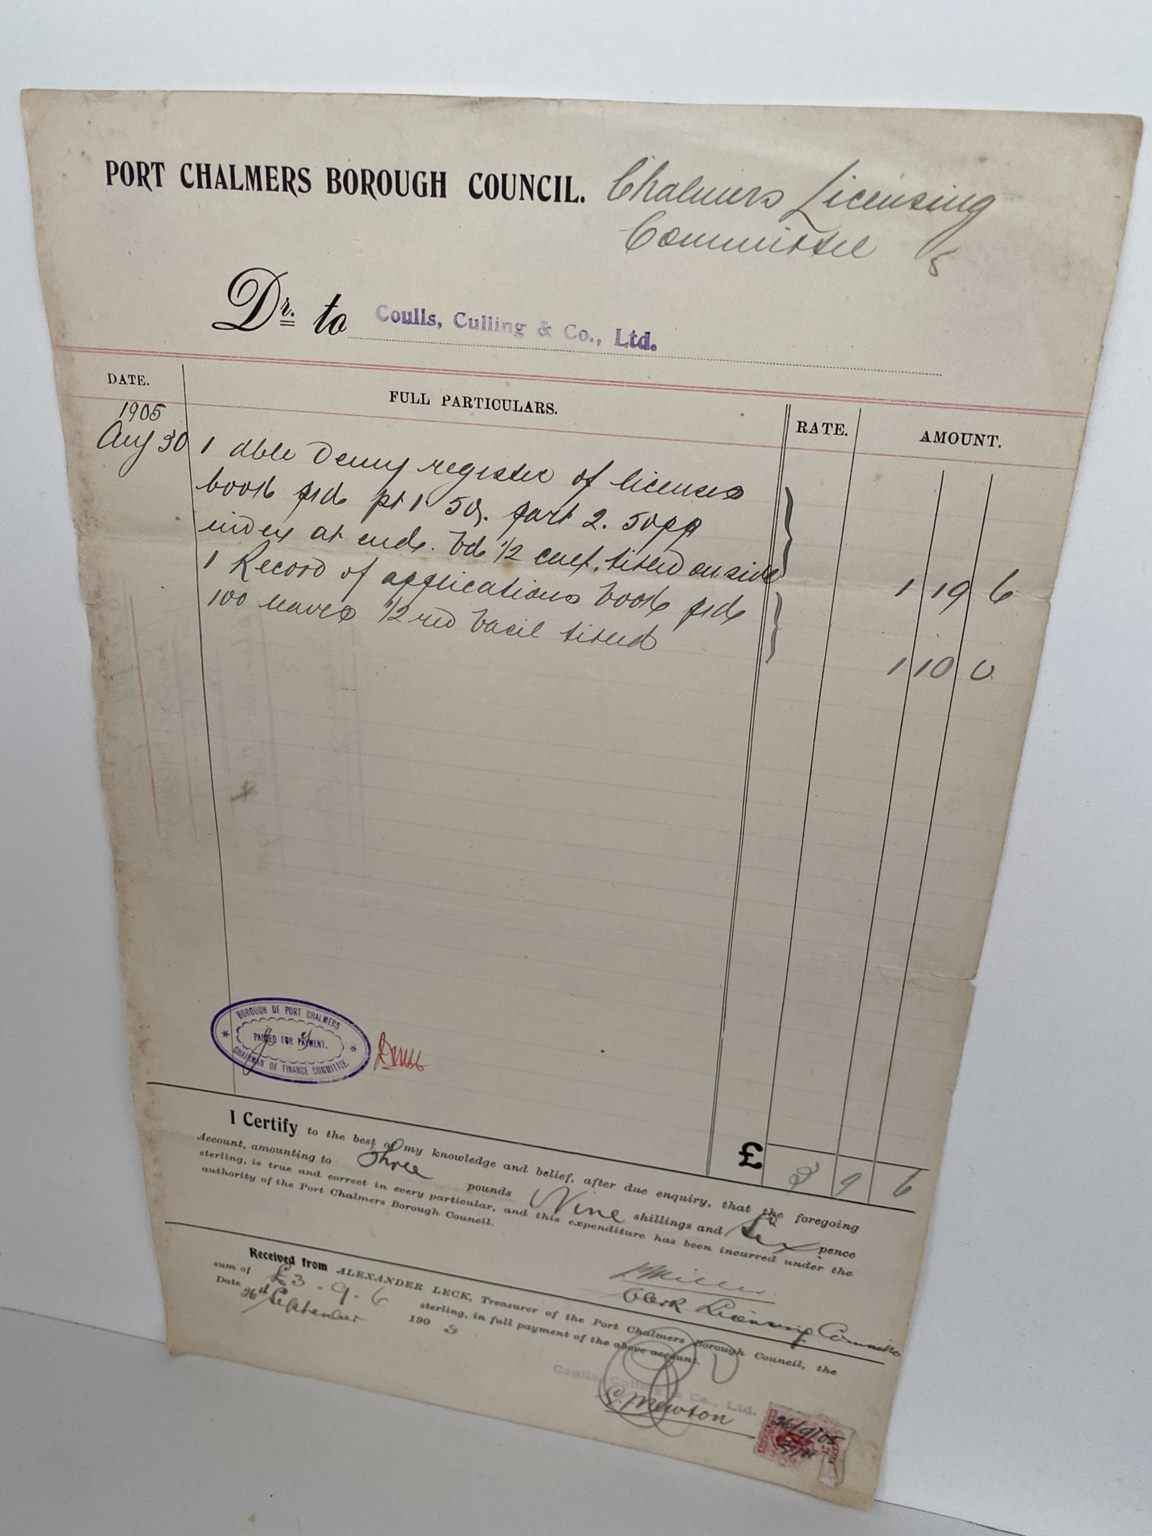 PORT CHALMERS BOROUGH COUNCIL. Chalmers Licensing
Committee 5
Dr. to Coulls, Culling & Co., Ltd.
DATE. FULL PARTICULARS. RATE. AMOUNT.
1905
Aug 30 1 dble Demy register of licenses
book ptd pt 1 50. part 2. 50pp
index at end. Bd 1/2 titled on side 1 19 6
1 Record of applications book ptd
100 leaves 1/2 red basil titled 1 10 0
BOROUGH OF PORT CHALMERS
PASSED FOR PAYMENT.
CHAIRMAN OF FINANCE COMMITTEE.
£ 3 9 6
I Certify to the best of my knowledge and belief, after due enquiry, that the foregoing
Account, amounting to Three pounds Nine shillings and Six pence
sterling, is true and correct in every particular, and this expenditure has been incurred under the
authority of the Port Chalmers Borough Council.
Miller
Clerk Licensing Committee
Received from ALEXANDER LECK, Treasurer of the Port Chalmers Borough Council, the
sum of £3-9-6 sterling, in full payment of the above account.
Date 26th September 190 5
Coulls, Culling & Co., Ltd.
Newton
26/9/05